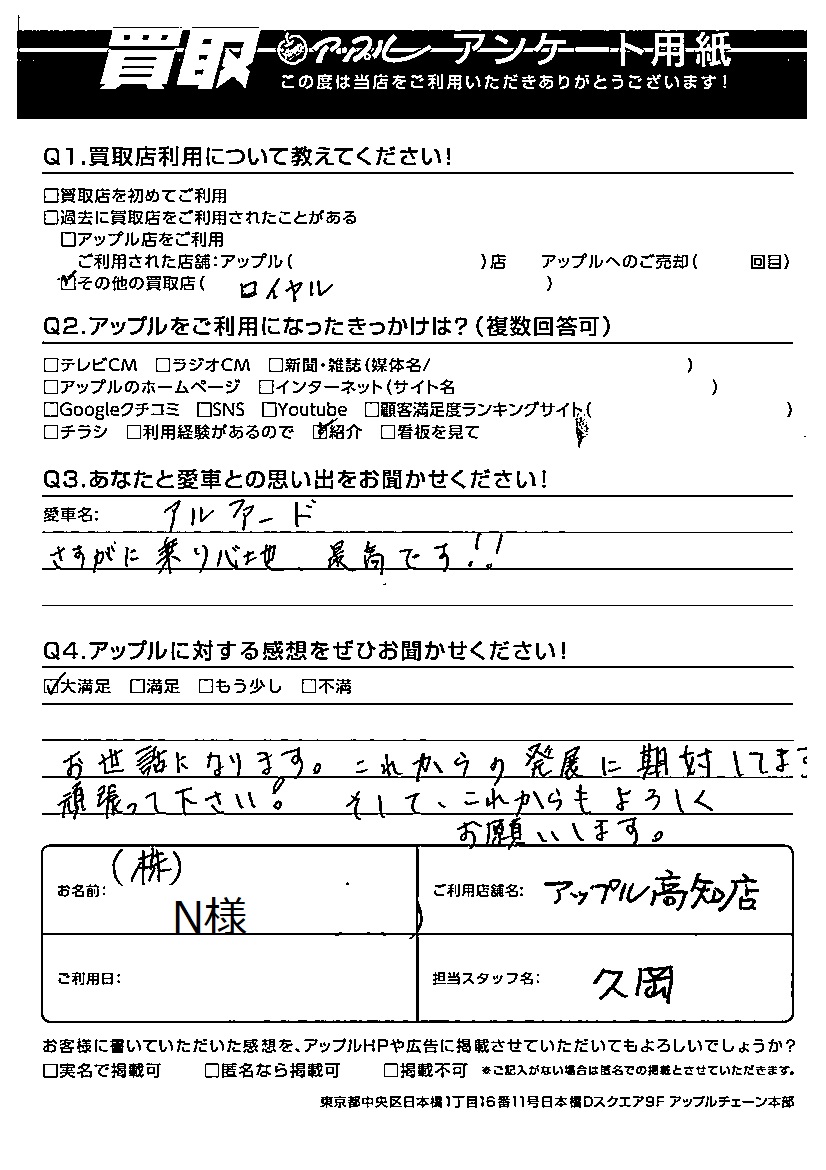 買取 アップル アンケート用紙
この度は当店をご利用いただきありがとうございます!
Q1.買取店利用について教えてください!
□買取店を初めてご利用
□過去に買取店をご利用されたことがある
□アップル店をご利用
ご利用された店舗:アップル( )店 アップルへのご売却( 回目)
☑その他の買取店( ロイヤル )
Q2.アップルをご利用になったきっかけは?(複数回答可)
□テレビCM □ラジオCM □新聞・雑誌(媒体名/ )
□アップルのホームページ □インターネット(サイト名 )
□Googleクチコミ □SNS □Youtube □顧客満足度ランキングサイト( )
□チラシ □利用経験があるので ☑紹介 □看板を見て
Q3.あなたと愛車との思い出をお聞かせください!
愛車名: アルファード
さすがに乗り心地、最高です!!
Q4.アップルに対する感想をぜひお聞かせください!
☑大満足 □満足 □もう少し □不満
お世話になります。これからの発展に期対してます
頑張って下さい! そして、これからもよろしく
お願いします。
お名前: (株)
N様
ご利用店舗名: アップル高知店
ご利用日:
担当スタッフ名: 久岡
お客様に書いていただいた感想を、アップルHPや広告に掲載させていただいてもよろしいでしょうか?
□実名で掲載可 □匿名なら掲載可 □掲載不可 ※ご記入がない場合は匿名での掲載とさせていただきます。
東京都中央区日本橋1丁目16番11号日本橋Dスクエア9F アップルチェーン本部